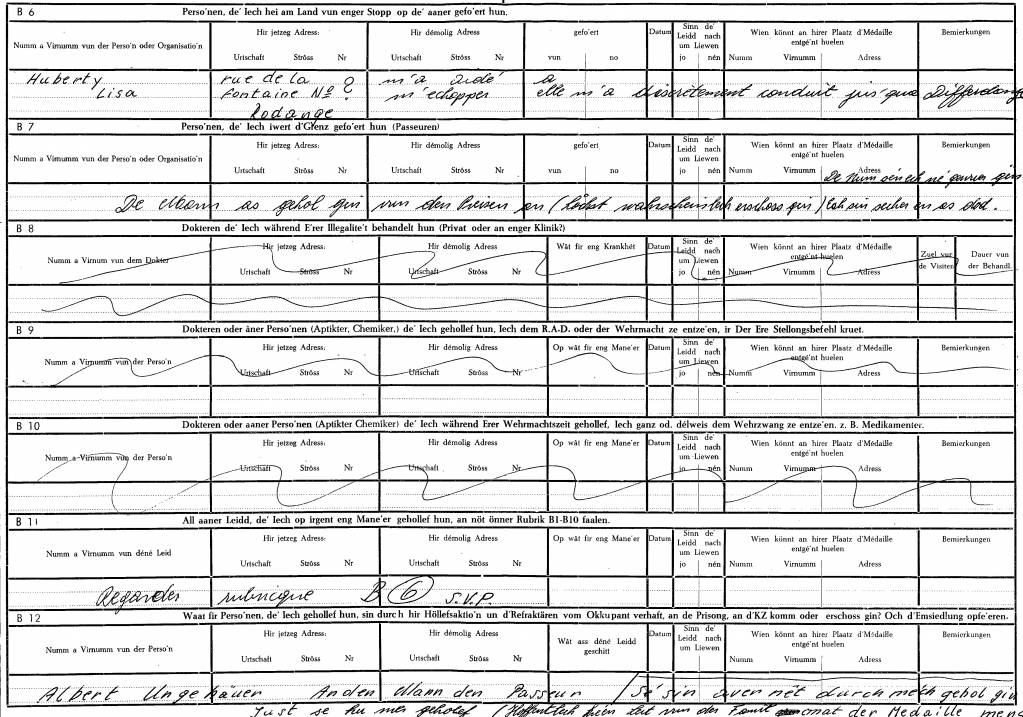 B 6 Perso'nen, de' Iech hei am Land vun enger Stopp op de' aaner gefo'ert hun.
Numm a Virnumm vun der Perso'n oder Organisatio'n
Hir jetzeg Adress: Hir démolig Adress: gefo'ert Datum Sinn de' Leidd nach um Liewen Wien könnt an hirer Plaatz d'Médaille entgé'nt huelen Bemierkungen
Urtschaft Ströss Nr Urtschaft Ströss Nr vun no jo nén Numm Virnumm Adress
Huberty rue de la m'a aidé a
Lisa Fontaine No ? m'echopper elle m'a discrètement conduit jus'qua Differdange
Rodange
B 7 Perso'nen, de' Iech iwert d'Grenz gefo'ert hun (Passeuren)
Numm a Virnumm vun der Perso'n oder Organisatio'n
Hir jetzeg Adress: Hir démolig Adress: gefo'ert Datum Sinn de' Leidd nach um Liewen Wien könnt an hirer Plaatz d'Médaille entgé'nt huelen Bemierkungen
Urtschaft Ströss Nr Urtschaft Ströss Nr vun no jo nén Numm Virnumm Adress
De Num sen ech né gewuer gin
De Mann as gehol gin vun den Preisen an (lëchst wahrscheinlech erschoss gin) Ech sin secher en as dod.
B 8 Dokteren de' Iech während E'rer Illegalite't behandelt hun (Privat oder an enger Klinik?)
Numm a Virnum vun dem Dokter
Hir jetzeg Adress: Hir démolig Adress: Wät fir eng Krankhét Datum Sinn de' Leidd nach um Liewen Wien könnt an hirer Plaatz d'Médaille entgé'nt huelen Zuel vun de Visiten Dauer vun der Behandl.
Urtschaft Ströss Nr Urtschaft Ströss Nr jo nén Numm Virnumm Adress
B 9 Dokteren oder âner Perso'nen (Aptikter, Chemiker,) de' Iech gehollef hun, Iech dem R.A.D. oder der Wehrmacht ze entze'en, ir Der Ere Stellongsbefehl kruet.
Numm a Virnumm vun der Perso'n
Hir jetzeg Adress: Hir démolig Adress: Op wät fir eng Mane'er Datum Sinn de' Leidd nach um Liewen Wien könnt an hirer Plaatz d'Médaille entgé'nt huelen Bemierkungen
Urtschaft Ströss Nr Urtschaft Ströss Nr jo nén Numm Virnumm Adress
B 10 Dokteren oder aaner Perso'nen (Aptikter Chemiker) de' Iech während Erer Wehrmachtszeit gehollef, Iech ganz od. délweis dem Wehrzwang ze entze'en. z. B. Medikamenter.
Numm a Virnumm vun der Perso'n
Hir jetzeg Adress: Hir démolig Adress Op wät fir eng Mane'er Datum Sinn de' Leidd nach um Liewen Wien könnt an hirer Plaatz d'Médaille entgé'nt huelen Bemierkungen
Urtschaft Ströss Nr Urtschaft Ströss Nr jo nén Numm Virnumm Adress
B 11 All aaner Leidd, de' Iech op irgent eng Mane'er gehollef hun, an nöt önner Rubrik B1-B10 faalen.
Numm a Virnumm vun déné Leid
Hir jetzeg Adress: Hir démolig Adress Op wät fir eng Mane'er Datum Sinn de' Leidd nach um Liewen Wien könnt an hirer Plaatz d'Médaille entgé'nt huelen Bemierkungen
Urtschaft Ströss Nr Urtschaft Ströss Nr jo nén Numm Virnumm Adress
Regarder rubricque B 6 S.V.P.
B 12 Waat fir Perso'nen, de' Iech gehollef hun, sin durch hir Höllefsaktio'n un d'Refraktären vom Okkupant verhaft, an de Prisong, an d'KZ komm oder erschoss gin? Och d'Emsiedlung opfe'eren.
Numm a Virnumm vun der Perso'n
Hir jetzeg Adress: Hir démolig Adress Wät ass déné Leidd geschitt Datum Sinn de' Leidd nach um Liewen Wien könnt an hirer Plaatz d'Médaille entgé'nt huelen Bemierkungen
Urtschaft Ströss Nr Urtschaft Ströss Nr jo nén Numm Virnumm Adress
Albert Ungehäuer An den Mann den Passeur / Sé sin awer nët durch mech gehol gin
Just se hu mer geholef (Hoffentlech vun der Famill der Medaille